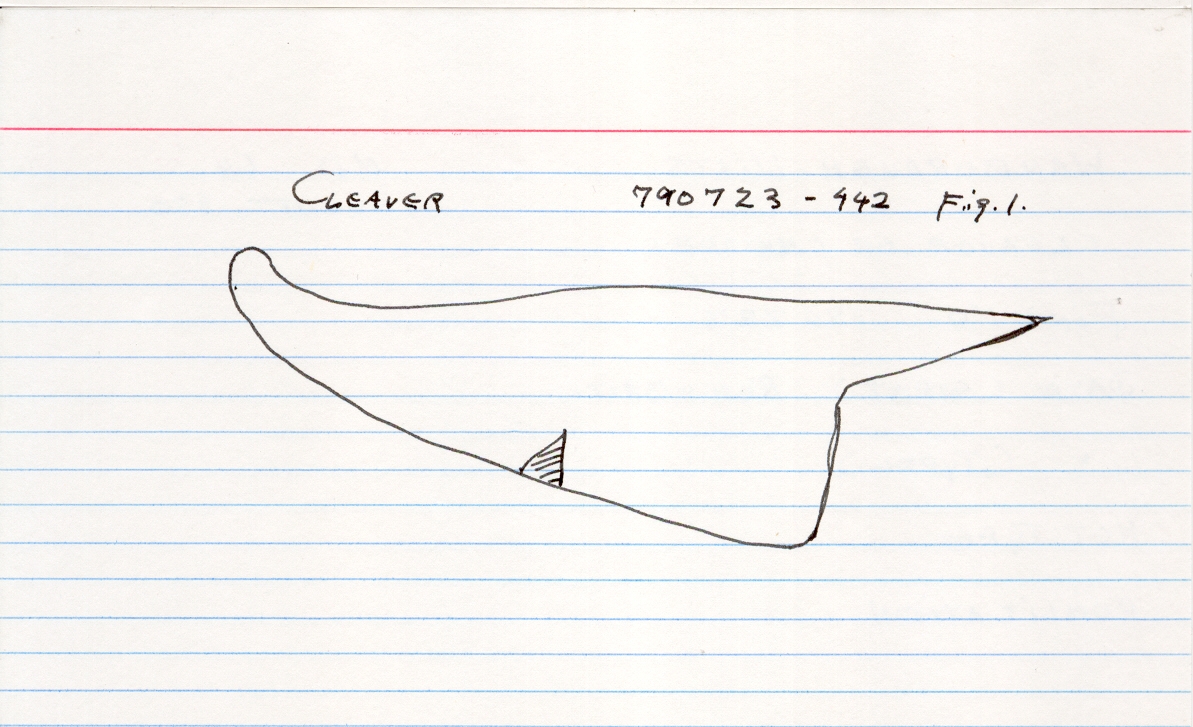 CLEAVER 790723-442 Fig.1.